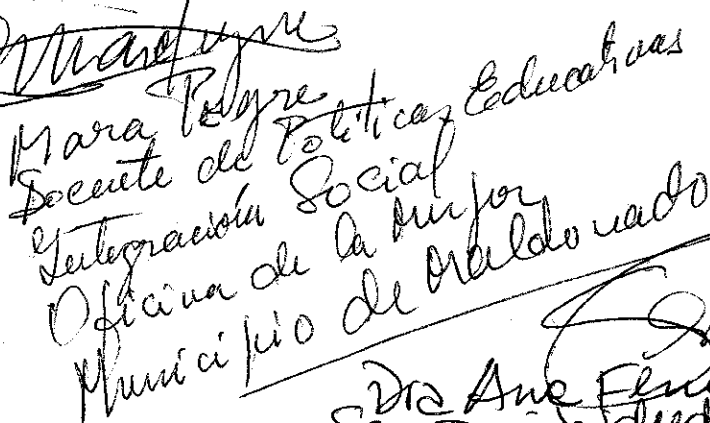 Mara
Docente de Politicas Educativas
Integración Social
Oficina de la Mujer
Municipio de Maldonado
Dra Ana